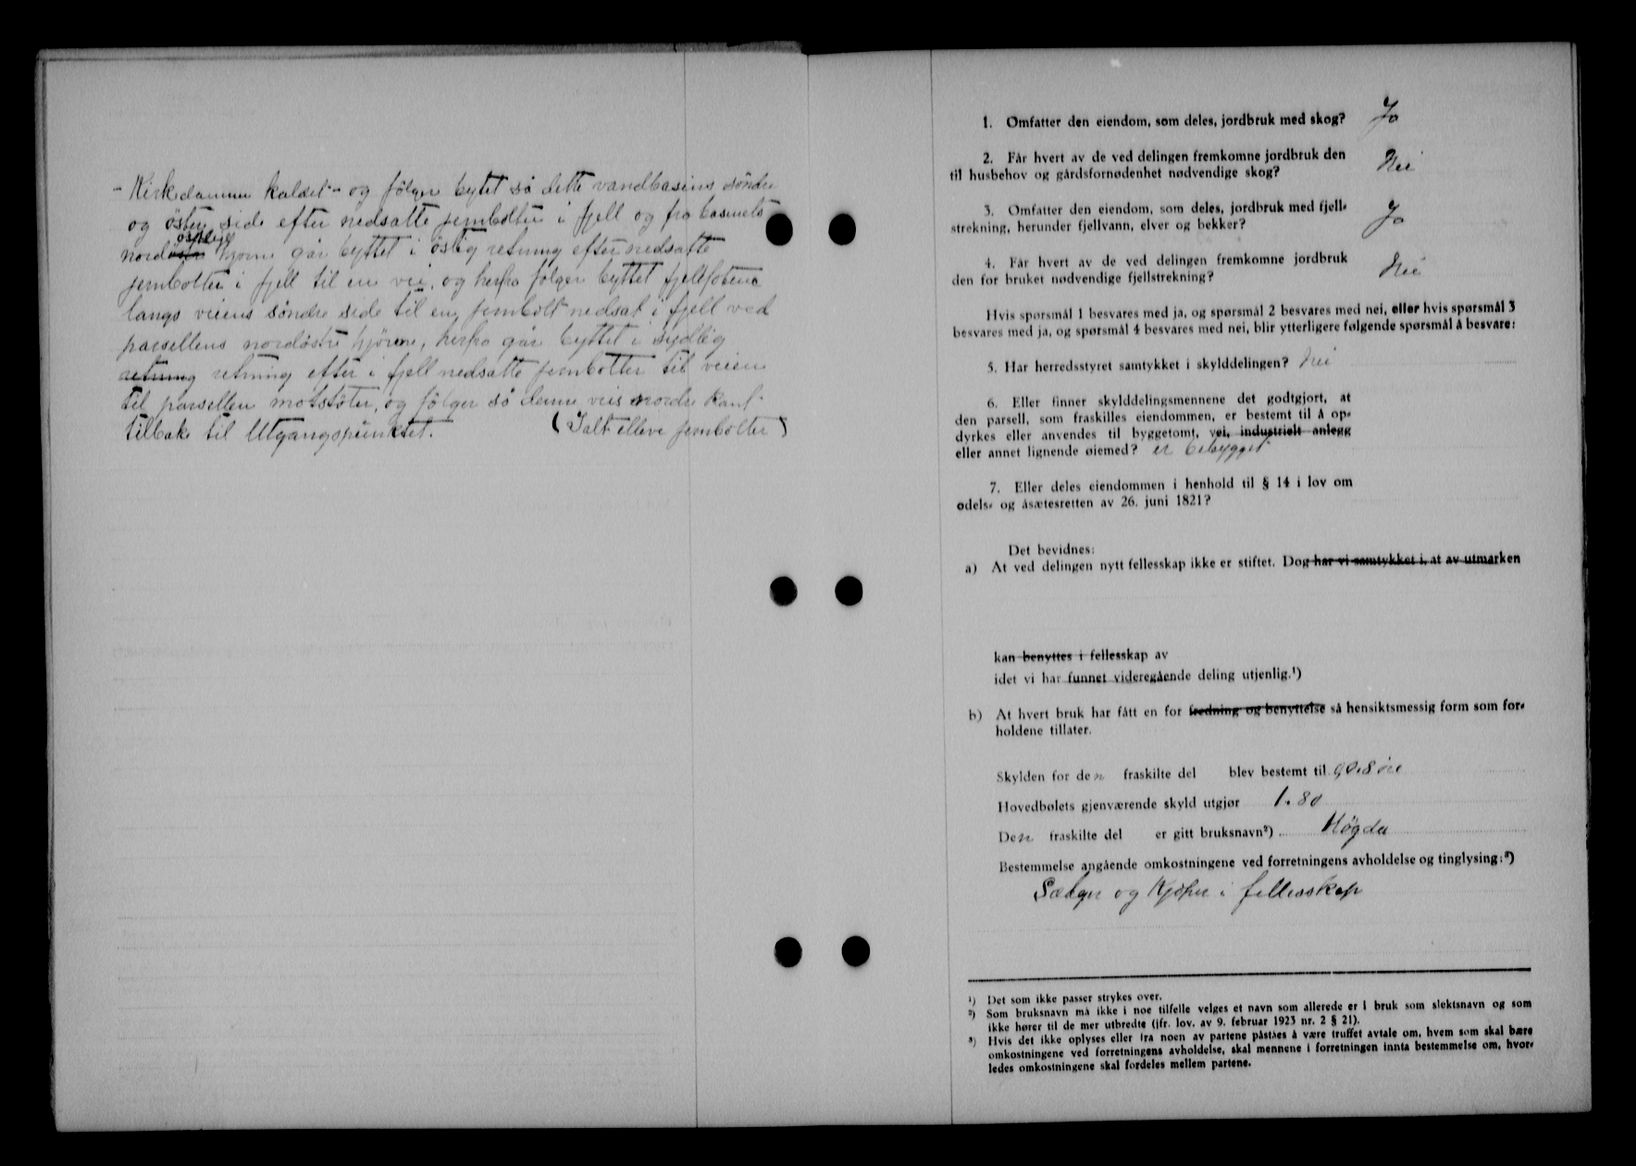 - Kirkdammen kaldet - og følger bytet så dette vandbasins søndre
og östre side efter nedsatte jernbolter i fjell og fra basinets
nordöstlige hjørne går byttet i östlig retning efter nedsatte
jernbolter i fjell til en vei, og herfra følger byttet fjellfoten
langs veiens søndre side til en jernbolt nedsat i fjell ved
parsellens nordöstre hjörne, herfra går byttet i sydlig
retning retning efter i fjell nedsatte jernbolter til veien
til parsellen motstöter, og fölger så denne veis nordre kant
tilbake til Utgangspunktet. (Ialt elleve jernbolter)
1. Omfatter den eiendom, som deles, jordbruk med skog? Ja
2. Får hvert av de ved delingen fremkomne jordbruk den
til husbehov og gårdsfornødenhet nødvendige skog? Nei
3. Omfatter den eiendom, som deles, jordbruk med fjell-
strekning, herunder fjellvann, elver og bekker? Ja
4. Får hvert av de ved delingen fremkomne jordbruk
den for bruket nødvendige fjellstrekning? Nei
Hvis spørsmål 1 besvares med ja, og spørsmål 2 besvares med nei, eller hvis spørsmål 3
besvares med ja, og spørsmål 4 besvares med nei, blir ytterligere følgende spørsmål å besvare:
5. Har herredsstyret samtykket i skylddelingen? Nei
6. Eller finner skylddelingsmennene det godtgjort, at
den parsell, som fraskilles eiendommen, er bestemt til å op-
dyrkes eller anvendes til byggetomt, vei, industrielt anlegg
eller annet lignende øiemed? er bebygget
7. Eller deles eiendommen i henhold til § 14 i lov om
odels- og åsætesretten av 26. juni 1821?
Det bevidnes:
a) At ved delingen nytt fellesskap ikke er stiftet. Dog har vi samtykket i, at av utmarken
kan benyttes i fellesskap av
idet vi har funnet videregående deling utjenlig.¹)
b) At hvert bruk har fått en for fredning og benyttelse så hensiktsmessig form som for-
holdene tillater.
Skylden for den fraskilte del blev bestemt til øre
Hovedbølets gjenværende skyld utgjør 1.80
Den fraskilte del er gitt bruksnavn²) Høgda
Bestemmelse angående omkostningene ved forretningens avholdelse og tinglysing:³)
Sælger og Kjøper i fellesskap
¹) Det som ikke passer strykes over.
²) Som bruksnavn må ikke i noe tilfelle velges et navn som allerede er i bruk som slektsnavn og som
ikke hører til de mer utbredte (jfr. lov. av 9. februar 1923 nr. 2 § 21).
³) Hvis det ikke oplyses eller fra noen av partene påståes å være truffet avtale om, hvem som skal bære
omkostningene ved forretningens avholdelse, skal mennene i forretningen innta bestemmelse om, hvor-
ledes omkostningene skal fordeles mellem partene.